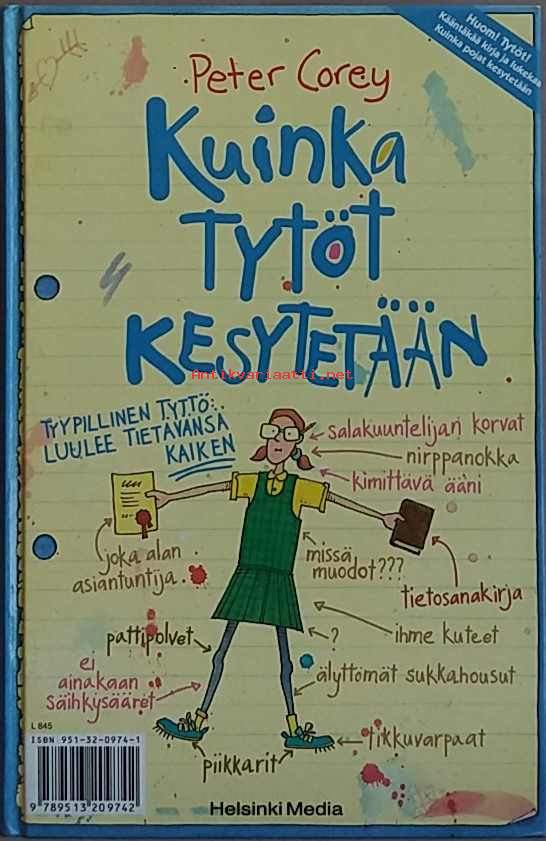 Huom! Tytöt!
Kääntäkää kirja ja lukekaa
Kuinka pojat kesytetään
Peter Corey
Kuinka
TYTÖT
KESYTETÄÄN
Antikvariaatti.net
TYYPILLINEN TYTTÖ:
LUULEE TIETÄVÄNSÄ
KAIKEN
salakuuntelijan korvat
nirppanokka
kimittävä ääni
joka alan
asiantuntija
missä
muodot???
tietosanakirja
pattipolvet
?
ihme kuteet
ei
ainakaan
säihkysääret
älyttömät sukkahousut
piikkarit
tikkuvarpaat
L 645
ISBN 951-32-0974-1
9 789513 209742
Helsinki Media